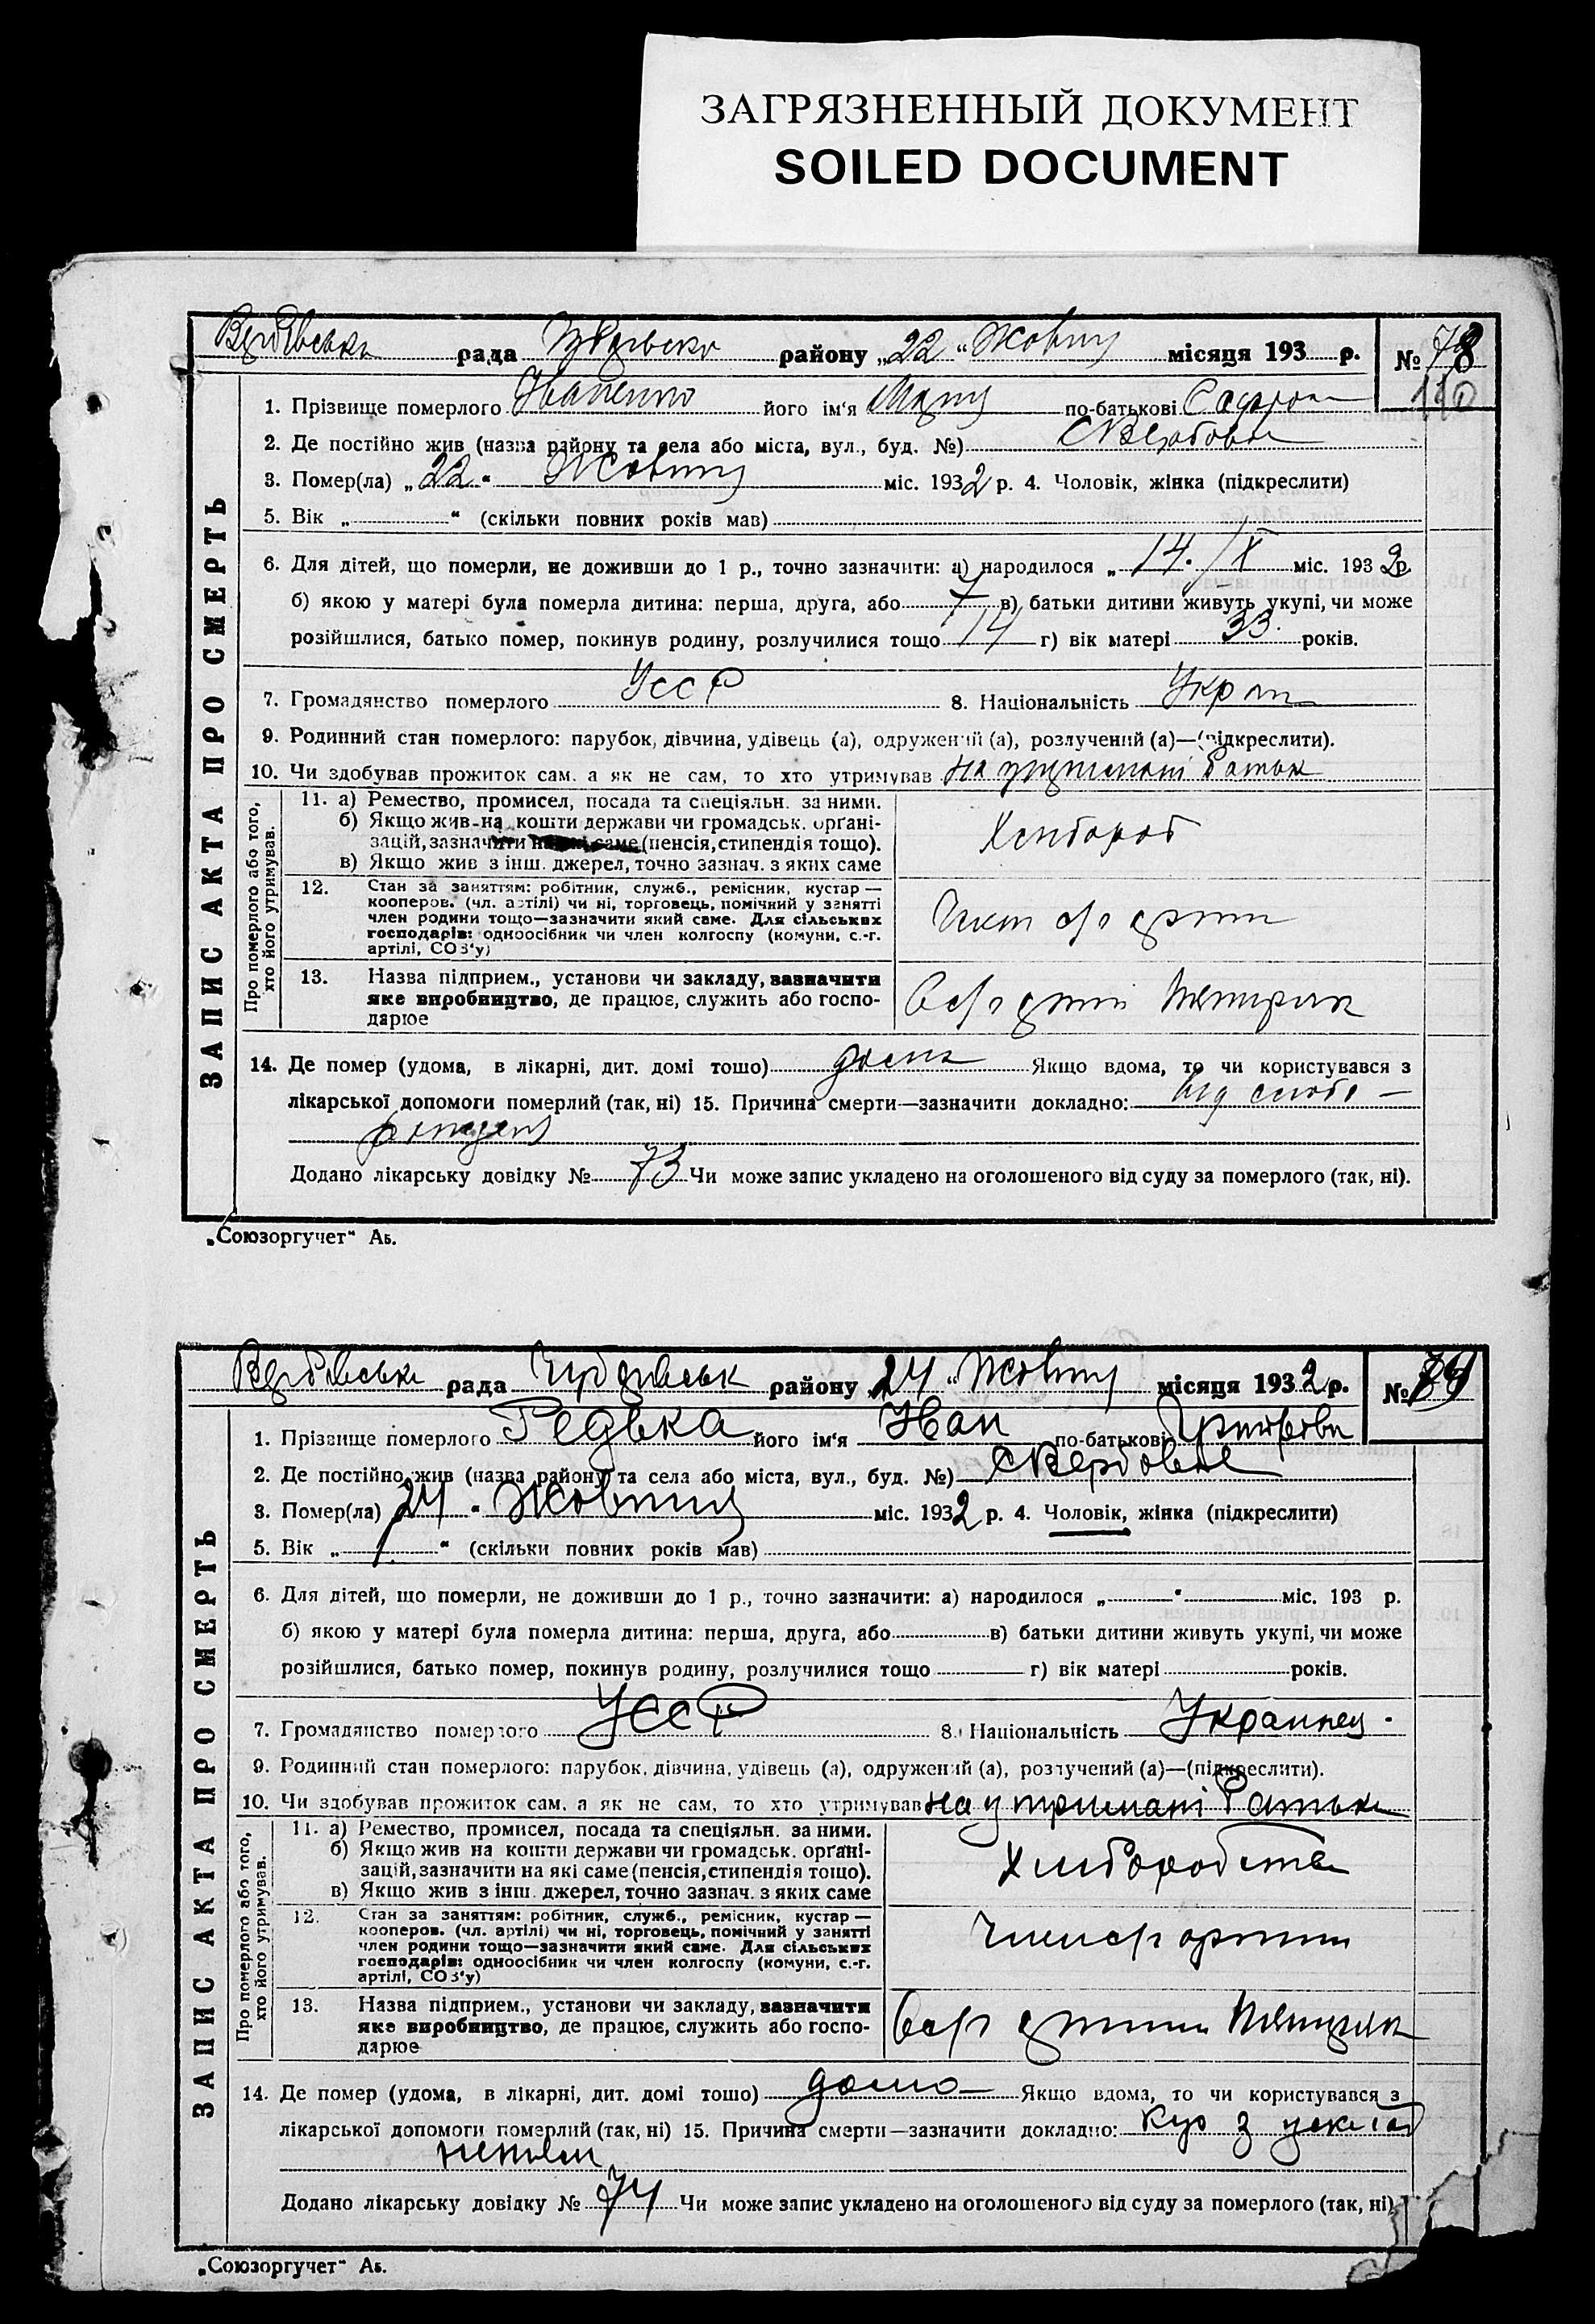 ЗАГРЯЗНЕННЫЙ ДОКУМЕНТ
SOILED DOCUMENT
рада району „22“ Жовтня місяця 193 р. № 78
110
1. Прізвище померлого Іваненко його ім‘я по-батькові
2. Де постійно жив (назва району та села або міста, вул., буд. №) с Вербова
3. Помер(ла) „22“ Жовтня міс. 1932 р. 4. Чоловік, жінка (підкреслити)
5. Вік „ “ (скільки повних років мав)
6. Для дітей, що померли, не доживши до 1 р., точно зазначити: а) народилося „14. IX міс. 1932 р.
б) якою у матері була померла дитина: перша, друга, або 7 в) батьки дитини живуть укупі, чи може
розійшлися, батько помер, покинув родину, розлучилися тощо 14 г) вік матері 33 років.
7. Громадянство померлого УССР 8. Національність Укра
9. Родинний стан померлого: парубок, дівчина, удівець (а), одружений (а), розлучений (а)—(підкреслити).
10. Чи здобував прожиток сам, а як не сам, то хто утримував на утримані батьк
ЗАПИС АКТА ПРО СМЕРТЬ
Про померлого або того, хто його утримував.
11. а) Ремество, промисел, посада та спеціяльн. за ними.
б) Якщо жив на кошти держави чи громадськ. орґані-
зацій, зазначити саме (пенсія, стипендія тощо).
в) Якщо жив з інш. джерел, точно зазнач. з яких саме
Хлібороб
12. Стан за заняттям: робітник, служб., ремісник, кустар —
кооперов. (чл. артілі) чи ні, торговець, помічний у занятті
член родини тощо—зазначити який саме. Для сільських
господарів: одноосібник чи член колгоспу (комуни, с.-г.
артілі, СОЗ‘у)
Член с/г артіли
13. Назва підприєм., установи чи закладу, зазначити
яке виробництво, де працює, служить або госпо-
дарює
с/г артіл
14. Де помер (удома, в лікарні, дит. домі тощо) дома Якщо вдома, то чи користувався з
лікарської допомоги померлий (так, ні) 15. Причина смерти—зазначити докладно: від слабо —
Додано лікарську довідку № 73 Чи може запис укладено на оголошеного від суду за померлого (так, ні).
„Союзоргучет“ Аб.
рада району „24“ Жовтня місяця 1932 р. № 79
1. Прізвище померлого Редька його ім‘я Іван по-батькові
2. Де постійно жив (назва району та села або міста, вул., буд. №) с Вербовое
3. Помер(ла) 24 “ Жовтня міс. 1932 р. 4. Чоловік, жінка (підкреслити)
5. Вік „ 1 “ (скільки повних років мав)
6. Для дітей, що померли, не доживши до 1 р., точно зазначити: а) народилося „ “ міс. 193 р.
б) якою у матері була померла дитина: перша, друга, або в) батьки дитини живуть укупі, чи може
розійшлися, батько помер, покинув родину, розлучилися тощо г) вік матері років.
7. Громадянство померлого УССР 8. Національність Украинец.
9. Родинний стан померлого: парубок, дівчина, удівець (а), одружений (а), розлучений (а)—(підкреслити).
10. Чи здобував прожиток сам, а як не сам, то хто утримував на утримані батька
ЗАПИС АКТА ПРО СМЕРТЬ
Про померлого або того, хто його утримував.
11. а) Ремество, промисел, посада та спеціяльн. за ними.
б) Якщо жив на кошти держави чи громадськ. орґані-
зацій, зазначити на які саме (пенсія, стипендія тощо).
в) Якщо жив з інш. джерел, точно зазнач. з яких саме
Хліборобства
12. Стан за заняттям: робітник, служб., ремісник, кустар —
кооперов. (чл. артілі) чи ні, торговець, помічний у занятті
член родини тощо—зазначити який саме. Для сільських
господарів: одноосібник чи член колгоспу (комуни, с.-г.
артілі, СОЗ‘у)
Член с/г артіли
13. Назва підприєм., установи чи закладу, зазначити
яке виробництво, де працює, служить або госпо-
дарює
с/г артіли
14. Де помер (удома, в лікарні, дит. домі тощо) дома Якщо вдома, то чи користувався з
лікарської допомоги померлий (так, ні) 15. Причина смерти—зазначити докладно: Кур з
Додано лікарську довідку № 74 Чи може запис укладено на оголошеного від суду за померлого (так, ні).
„Союзоргучет“ Аб.